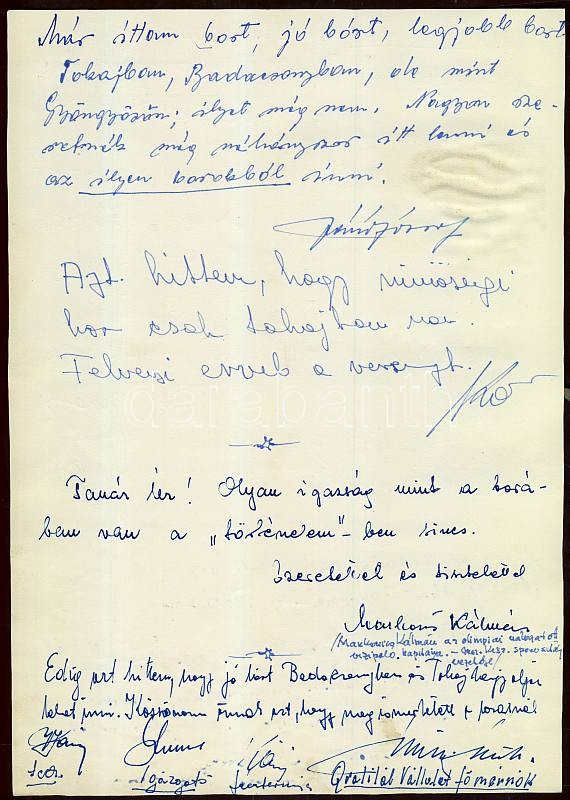 Már ittam bort, jó bort, legjobb bort
Tokajban, Badacsonyban, de mint
Gyöngyösön; ilyet még nem. Nagyon sze-
retnék még néhányszor itt lenni és
az ilyen borokból inni.
Azt hittem, hogy minőségi
bor csak tokajban van.
Felveszi evvel a versenyt.
darabanth
Tanár úr! Olyan igazság mint a borá-
ban van a „történelem"-ben sincs.
Szeretettel és tisztelettel
Markovits Kálmán
/Markovics Kálmán az olimpiai válogatott
vizipóló kapitánya. –
Eddig azt hittem, hogy jó bort Badacsonyban és Tokajhegyalján
lehet inni. Köszönöm Önnek azt, hogy megismertetett a boraival
Igazgató
Vállalat főmérnök